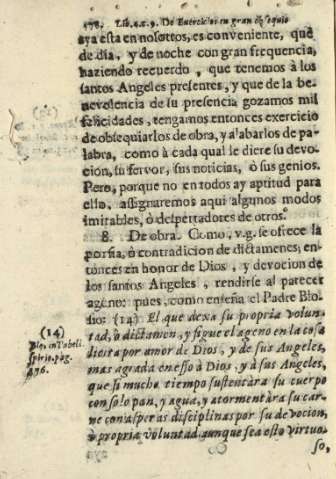 478. Lib. 4. c. 9. De Exercicios en gran obsequio
aya esta en nosottos, es conveniente, que
de dia, y de noche con gran frequencia,
haziendo recuerdo, que tenemos à los
santos Angeles presentes, y que de la be-
nevolencia de su presencia gozamos mil
felicidades, tengamos entonces exercicio
de obsequiarlos de obra, y alabarlos de pa-
labra, como à cada qual le diere su devo-
cion, su fervor, sus noticias, ò sus genios.
Pero, porque no en todos ay aptitud para
ello, assignaremos aqui algunos modos
imitables, ò despertadores de otros.
8. De obra. Como, v.g. se ofrece la
porfia, ò contradicion de dictamenes; en-
tonces en honor de Dios, y devocion de
los santos Angeles, rendirse al parecer
ageno: pues, como enseña el Padre Blo-
sio: (14) El que dexa su propria volun-
tad, ò dictamen, y sigue el ageno en la cosa
licita por amor de Dios, y de sus Angeles,
mas agrada en esso à Dios, y à sus Angeles,
que si mucho tiempo sustentàra su cuerpo
con solo pan, y agua, y atormentàra su car-
ne con asperas disciplinas por su devocion,
ò propria voluntad aunque sea esto virtuo-
so,
(14)
Blos. in Tabell.
spirit. pag.
476.